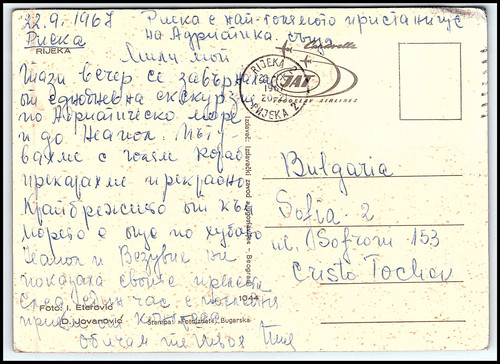 22.9.1967
Риека е най-голямото пристанище
на Адриатика. също
Риека
RIJEKA
Мили мой
Тази вечер се завърнахме
от еднодневна екскурзия
по Адриатическо море
и до Неапол. Пъту-
вахме с голям кораб
прекарахме прекрасно
Крайбрежието от към
морето е още по хубаво
Неапол и Везувий ни
показаха своите прелести
След един час с
Обичам те твоя
Caravelle
JAT
YUGOSLAV AIRLINES
RIJEKA 2
RIJEKA 2
Bulgaria
Sofia - 2
ul. Sofroni 153
Cristo Tochev
Izdavač: Izdavački zavod "Jugoslavija" - Beograd
1044
Foto: I. Eterović
D. Jovanović
Štampa: "Fotoizdat", Bugarska